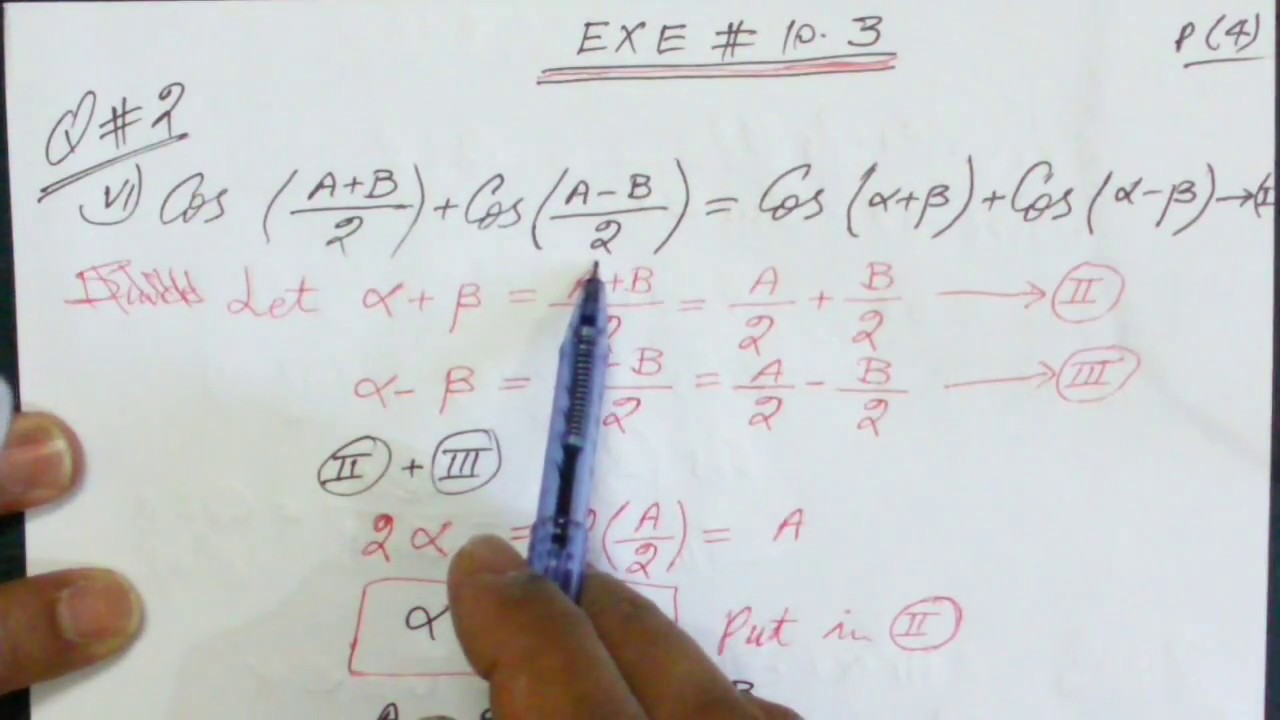 EXE # 10.3
P(4)
Q#2
vi) Cos (A+B/2) + Cos (A-B/2) = Cos (α+β) + Cos (α-β) →
Let α+β = +B/2 = A/2 + B/2 → II
α-β = -B/2 = A/2 - B/2 → III
II + III
2α = (A/2) = A
α
Put in II